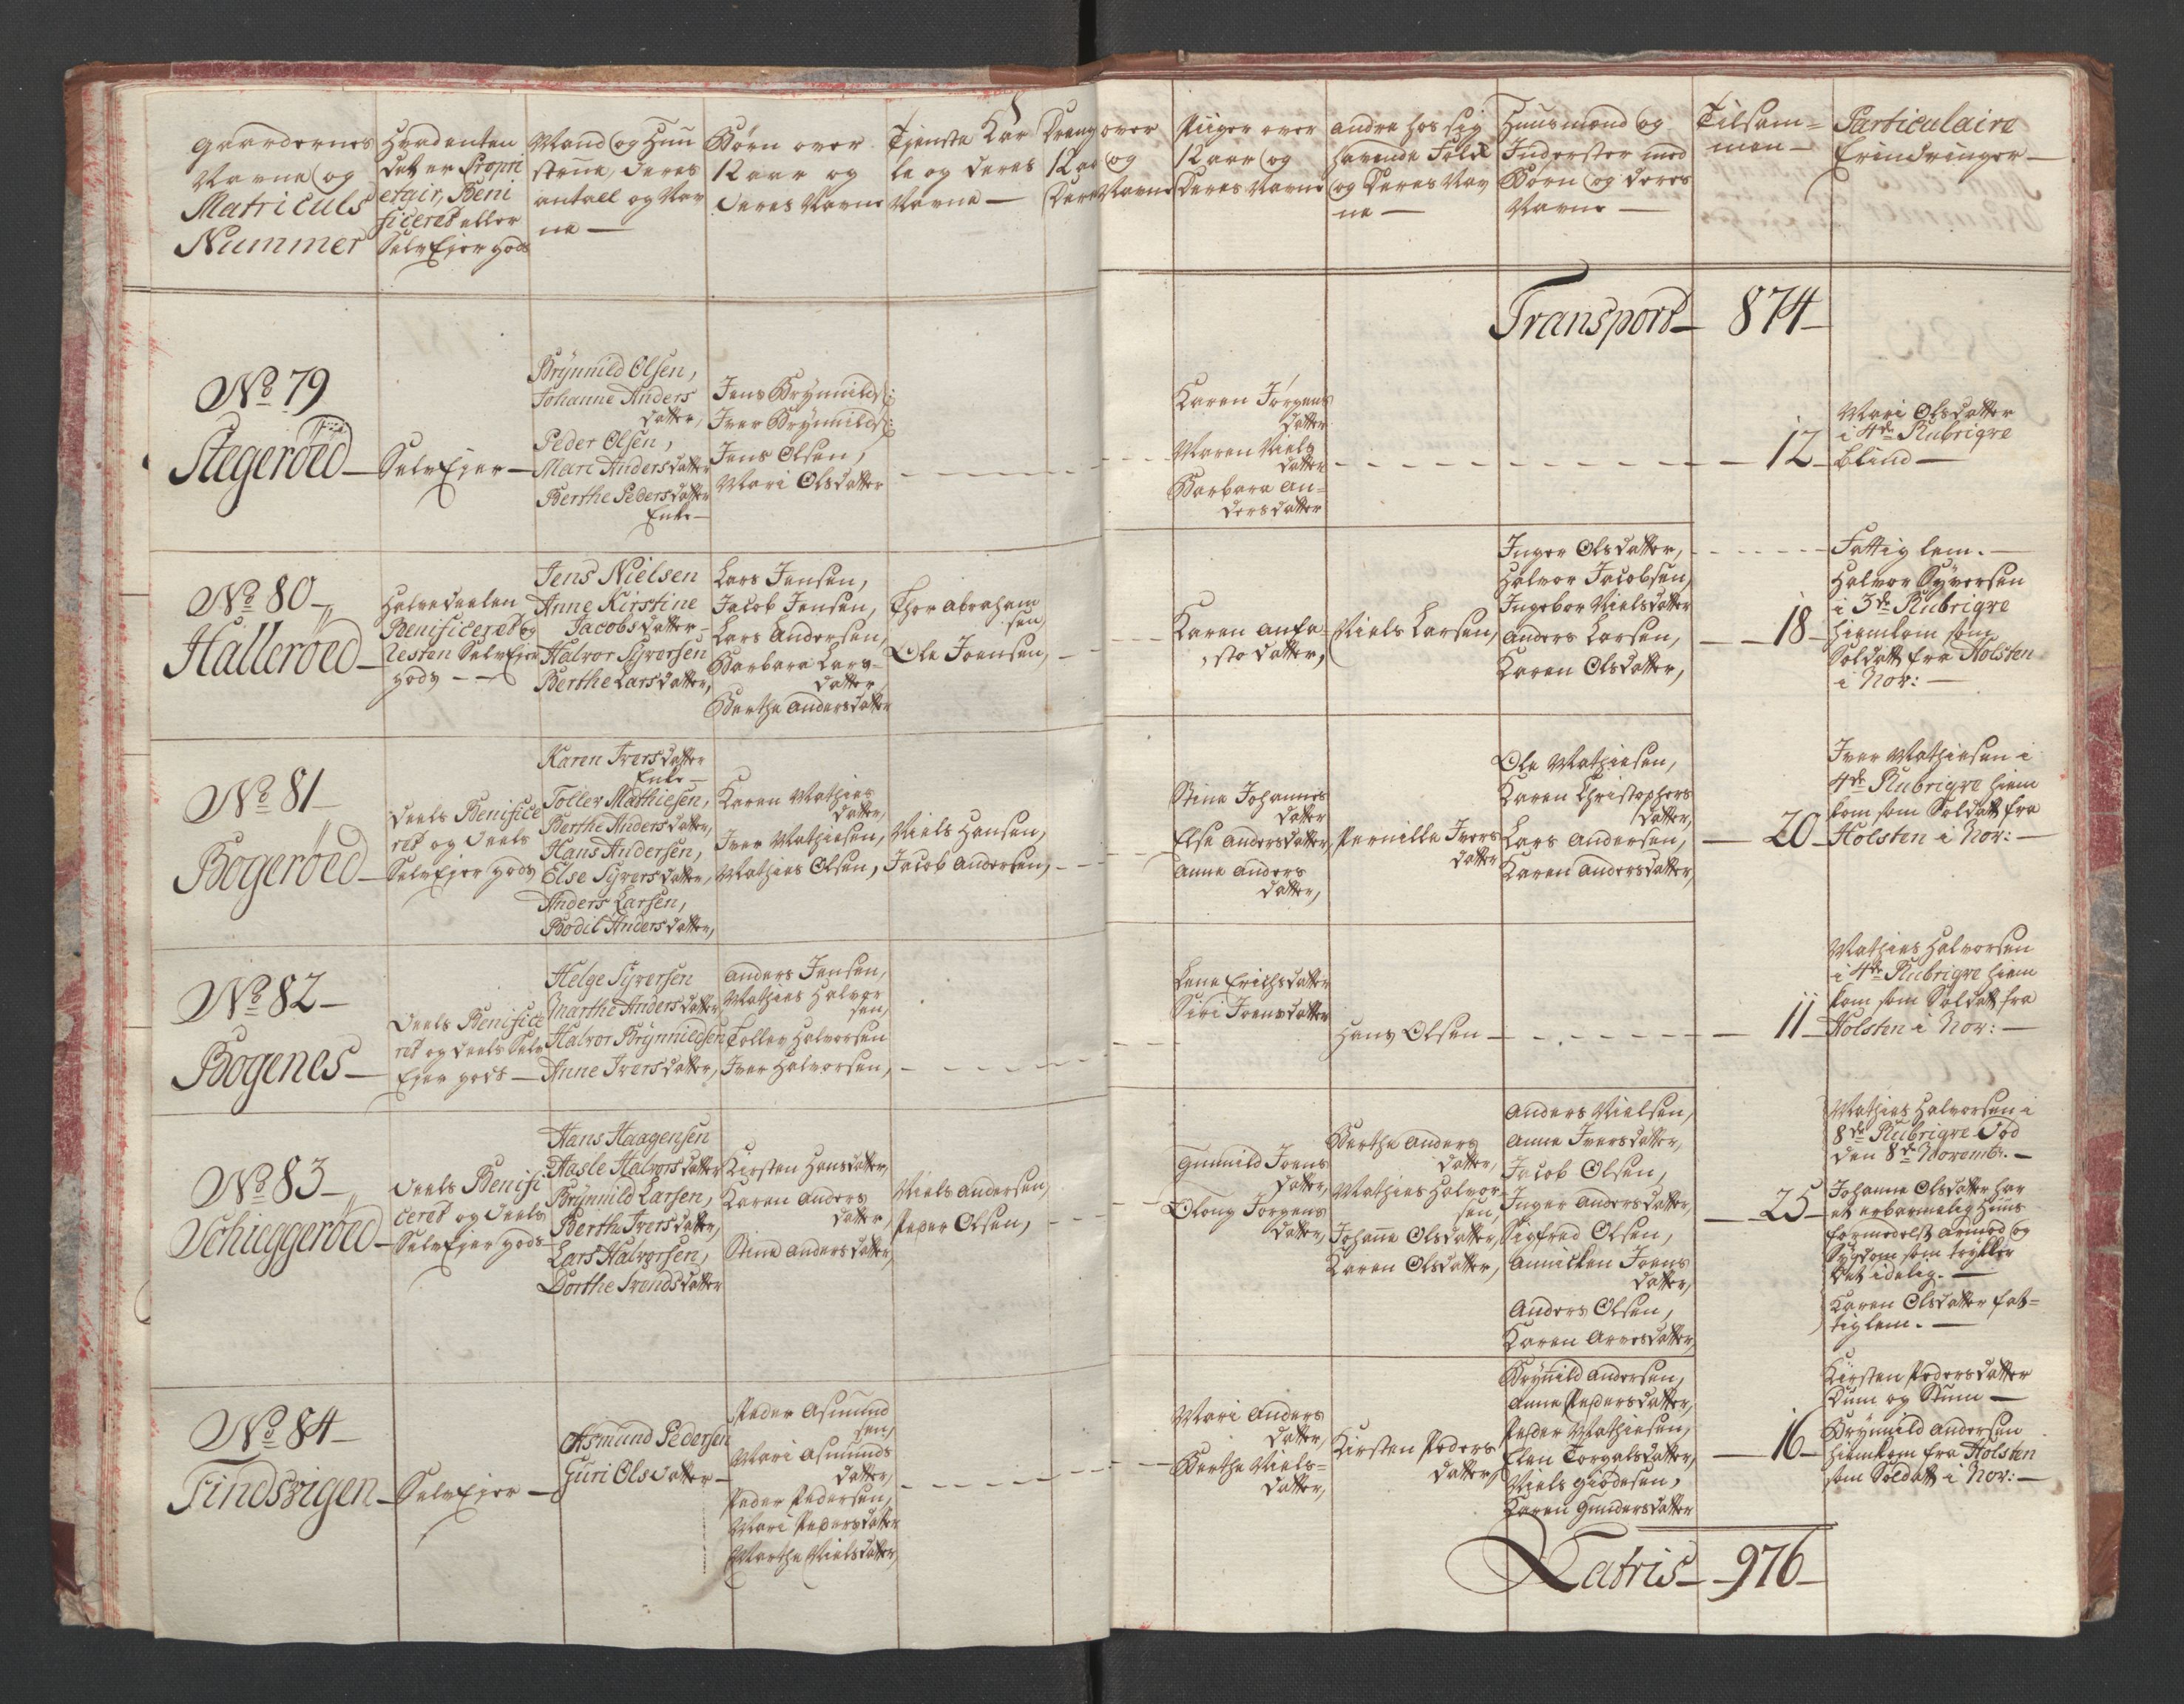 Gaardernes
Navne og
Matriculs
Nummer
Hvadenten
det er Propri
etair, Beni
ficeret eller
SelvEjer gods
Mand og Huu
struue, deres
antall og Nav
ne —
Børn over
12 aar og
deres Navne
Tjeneste Kar
le og deres
Navne —
Dreng over
12 aar og
Deres Navne
Piiger over
12 aar og
Deres Navne
andre hos sig
havende Folck
og deres Nav
ne —
Huusmænd og
Inderster med
Børn og deres
Navne —
Tilsam=
men —
Particulaire
Erindringer —
Transport — 874 —
No 79
Stegerøed —
SelvEjer —
Brynnild Olsen,
Johanne Anders
datter,
Peder Olsen,
Mari Andersdatter
Berthe Pedersdatter
Enke —
Jens Brynnilds:
Iver Brynnilds:
Jens Olsen,
Mari Olsdatter
Karen Jørgens
datter
Maren Niels
datter
Barbara An=
dersdatter
12
Mari Olsdatter
i 4de Rubriqve
blind —
No 80 —
Hallerøed —
Halvedeelen
Benificeret og
resten SelvEjer
gods —
Jens Nielsen
Anne Kirstine
Jacobsdatter —
Halvor Syversen
Berthe Larsdatter,
Lars Jensen,
Jacob Jensen,
Lars Andersen,
Barbara Lars=
datter
Berthe Andersdatter
Thor Abraham
sen,
Ole Joensen,
Karen Anfa=
sto datter,
Niels Larsen,
Inger Olsdatter,
Halvor Jacobsen,
Ingebor Nielsdatter
Anders Larsen,
Karen Olsdatter,
18
Fattig lem. —
Halvor Syversen
i 3de Rubriqve
hiemkom som
Soldatt fra Holsten
i Nov: —
No 81 —
Bogerøed —
deels Benifice
ret og deels
SelvEjer gods
Karen Iversdatter
Enke —
Toller Mathiesen,
Berthe Andersdatter,
Hans Andersen,
Else Syversdatter,
Anders Larsen,
Bodil Andersdatter,
Karen Mathies
datter,
Iver Mathiesen,
Mathies Olsen,
Niels Hansen,
Jacob Andersen,
Stine Johannes
datter
Else Andersdatter,
Anne Anders
datter,
Pernille Ivers
datter
Ole Mathiesen,
Karen Christophers
datter,
Lars Andersen,
Karen Andersdatter,
20
Iver Mathiesen i
4de Rubriqve hiem
kom som Soldatt fra
Holsten i Nov: —
No 82 —
Bogenes —
deels Benifice
ret og deels Selv
Ejer gods —
Helge Syversen
Marthe Andersdatter
Halvor Brynnildsen
Anne Iversdatter,
Anders Jensen,
Mathies Halvor
sen,
Tollev Halvorsen
Iver Halvorsen,
Lene Erichsdatter
Siri Joensdatter
Hans Olsen —
11
Mathies Halvorsen
i 4de Rubriqve hiem
kom som Soldatt fra
Holsten i Nov: —
No 83 —
Schieggerøed —
deels Benifi
ceret og deels
SelvEjer gods
Hans Haagensen
Aasle Halvorsdatter
Brynnild Larsen,
Berthe Iversdatter,
Lars Halvorsen,
Dorthe Svendsdatter
Kirsten Hansdatter,
Karen Anders
datter,
Stine Andersdatter,
Niels Andersen,
Peder Olsen,
Gunnild Joens
datter,
Oloug Jørgens
datter,
Berthe Anders
datter,
Mathies Halvor
sen,
Johanne Olsdatter,
Karen Olsdatter,
Anders Nielsen,
Anne Iversdatter,
Jacob Olsen,
Inger Andersdatter,
Sigfred Olsen,
Annicken Joens
datter,
Anders Olsen,
Karen Arvesdatter,
25
Mathies Halvorsen i
8de Rubriqve Død
den 8de Novembr. —
Johanne Olsdatter har
et erbarmelig Huus
formedelst armod og
Sygdom som trykker
det idelig. —
Karen Olsdatter fat=
tig lem. —
No 84 —
Findsvigen —
SelvEjer —
Asmund Pedersen
Guri Olsdatter —
Peder Asmund
sen,
Mari Asmunds
datter,
Peder Pedersen,
Mari Pedersdatter
Marthe Nielsdatter,
Mari Anders
datter,
Berthe Niels=
datter,
Kirsten Peders
datter,
Brynild Andersen,
Anne Pedersdatter,
Peder Mathiesen,
Elen Torgalsdatter,
Niels Giødesen,
Karen Gundersdatter
16
Kirsten Pedersdatter
Dum og Stum —
Brynnild Andersen
hiemkom fra Holsten
som Soldatt i Nov: —
Latris — 976 —